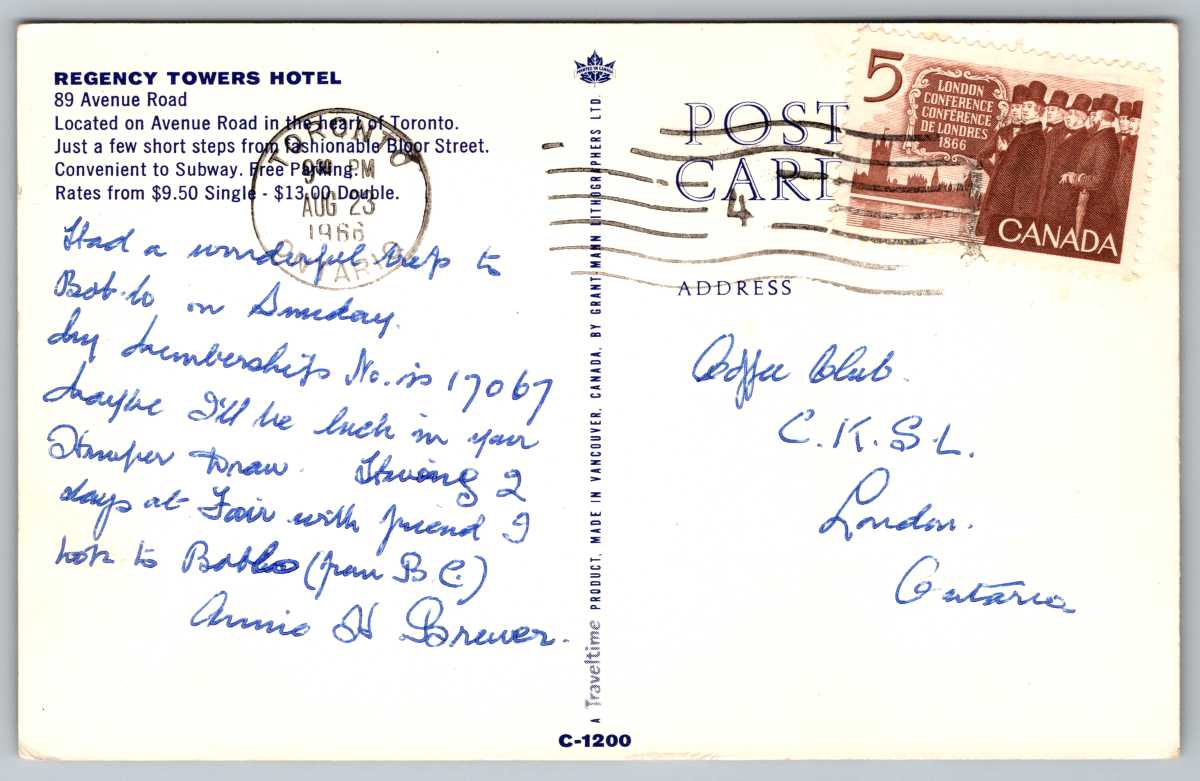 REGENCY TOWERS HOTEL
89 Avenue Road
Located on Avenue Road in the heart of Toronto.
Just a few short steps from fashionable Bloor Street.
Convenient to Subway. Free Parking.
Rates from $9.50 Single - $13.00 Double.
TORONTO
PM
AUG 23
1966
ONTARIO
Had a wonderful trip to
Bob-lo on Sunday.
My Membership No. is 17067
Maybe I'll be luck in your
Draw. Having 2
days at Fair with friend I
took to Boblo (from B C.)
Annie H Brewer.
PRINTED IN CANADA
A Traveltime PRODUCT, MADE IN VANCOUVER, CANADA, BY GRANT-MANN LITHOGRAPHERS LTD.
C-1200
POST
CARD
4
5
LONDON
CONFERENCE
CONFÉRENCE
DE LONDRES
1866
CANADA
ADDRESS
Coffee Club.
C.K.S.L.
London.
Ontario